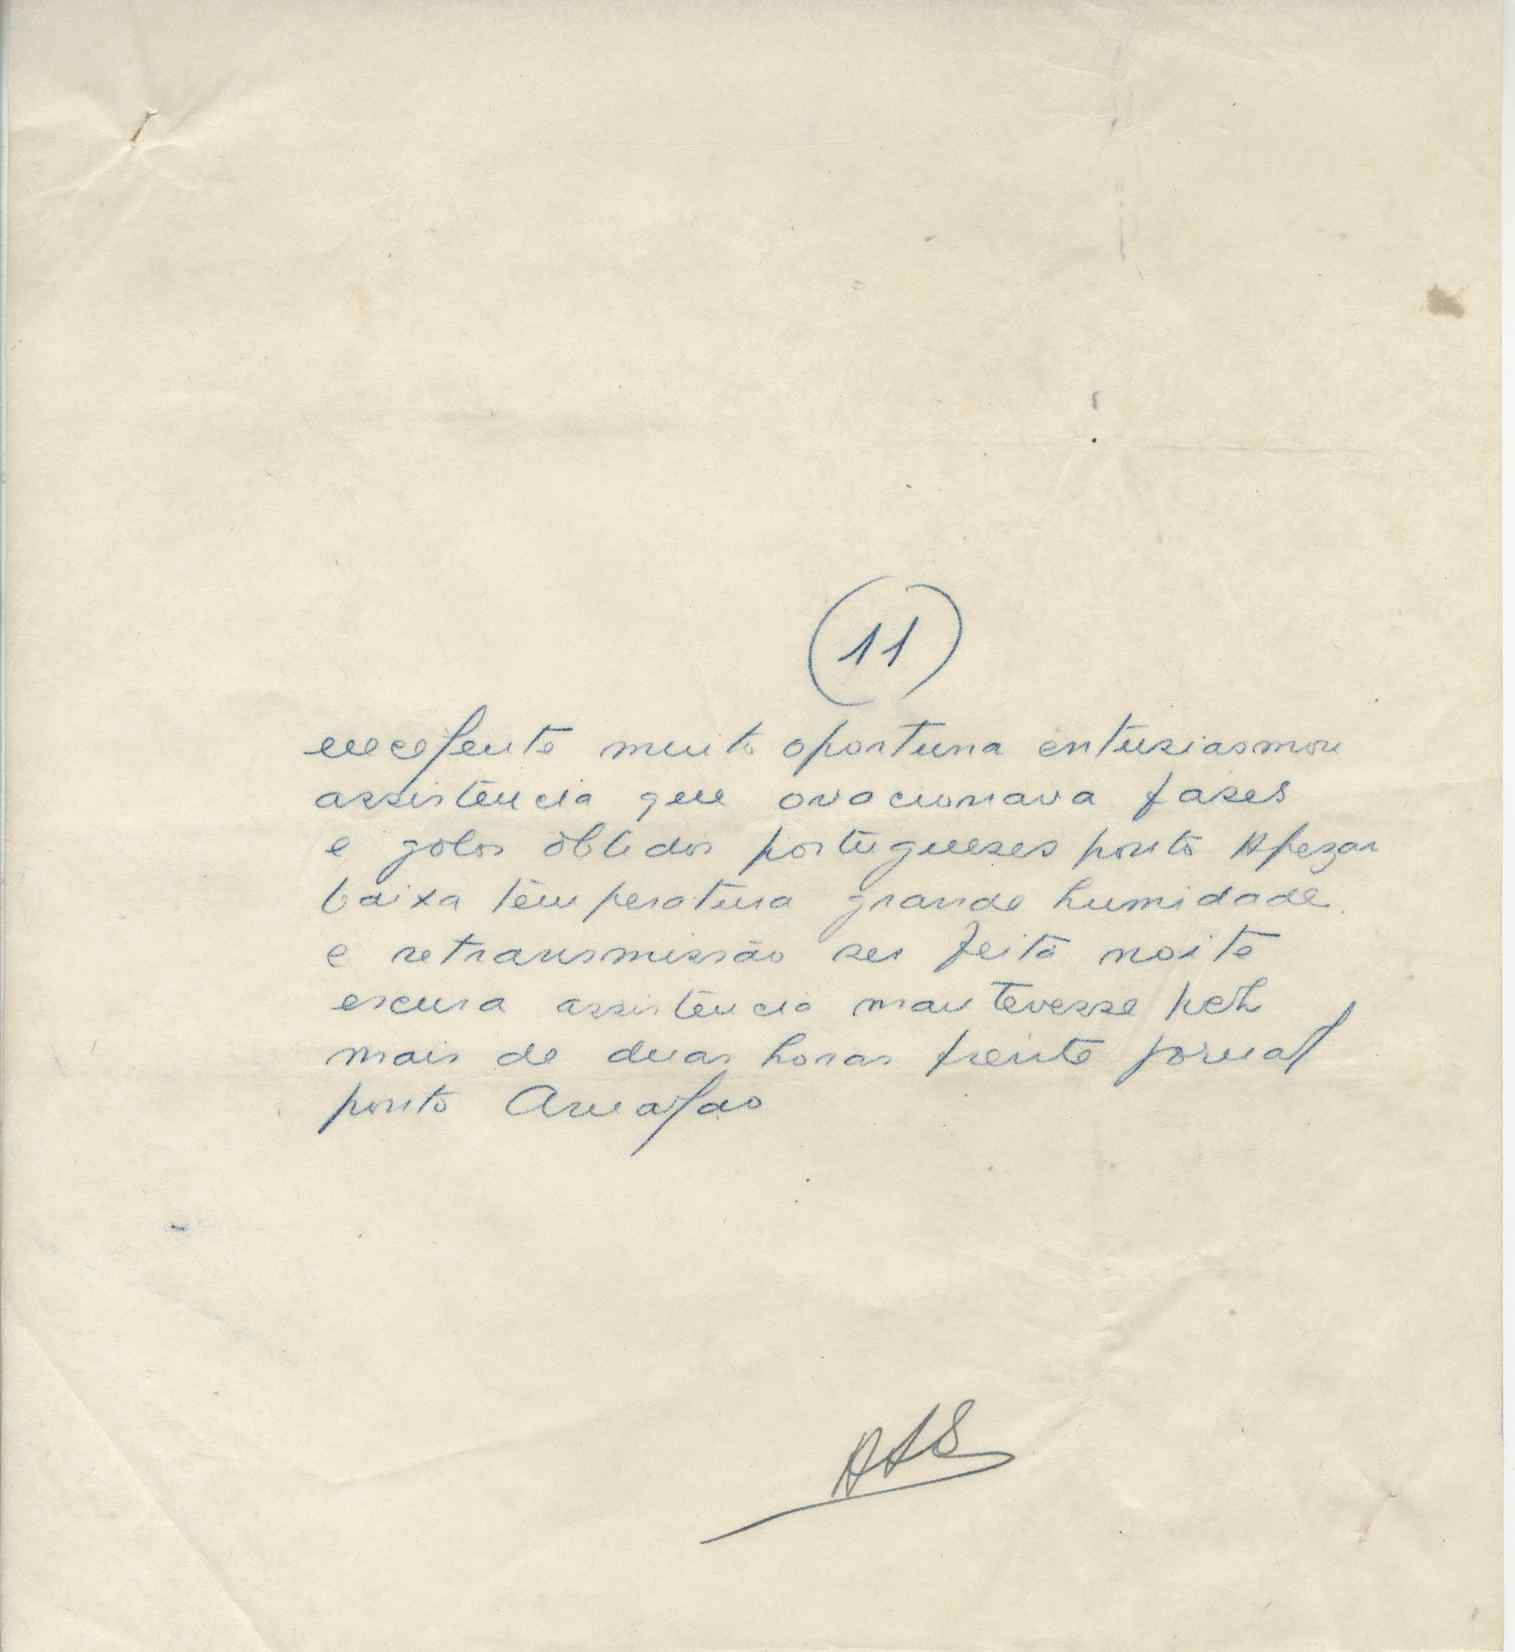 (11)
excelente muito oportuna entusiasmou
assistência que ovacionava fases
e golos obtidos portugueses ponto Apezar
baixa temperatura grande humidade
e retransmissão ser feita noite
escura assistência mantevesse
mais de duas horas frente jornal
ponto